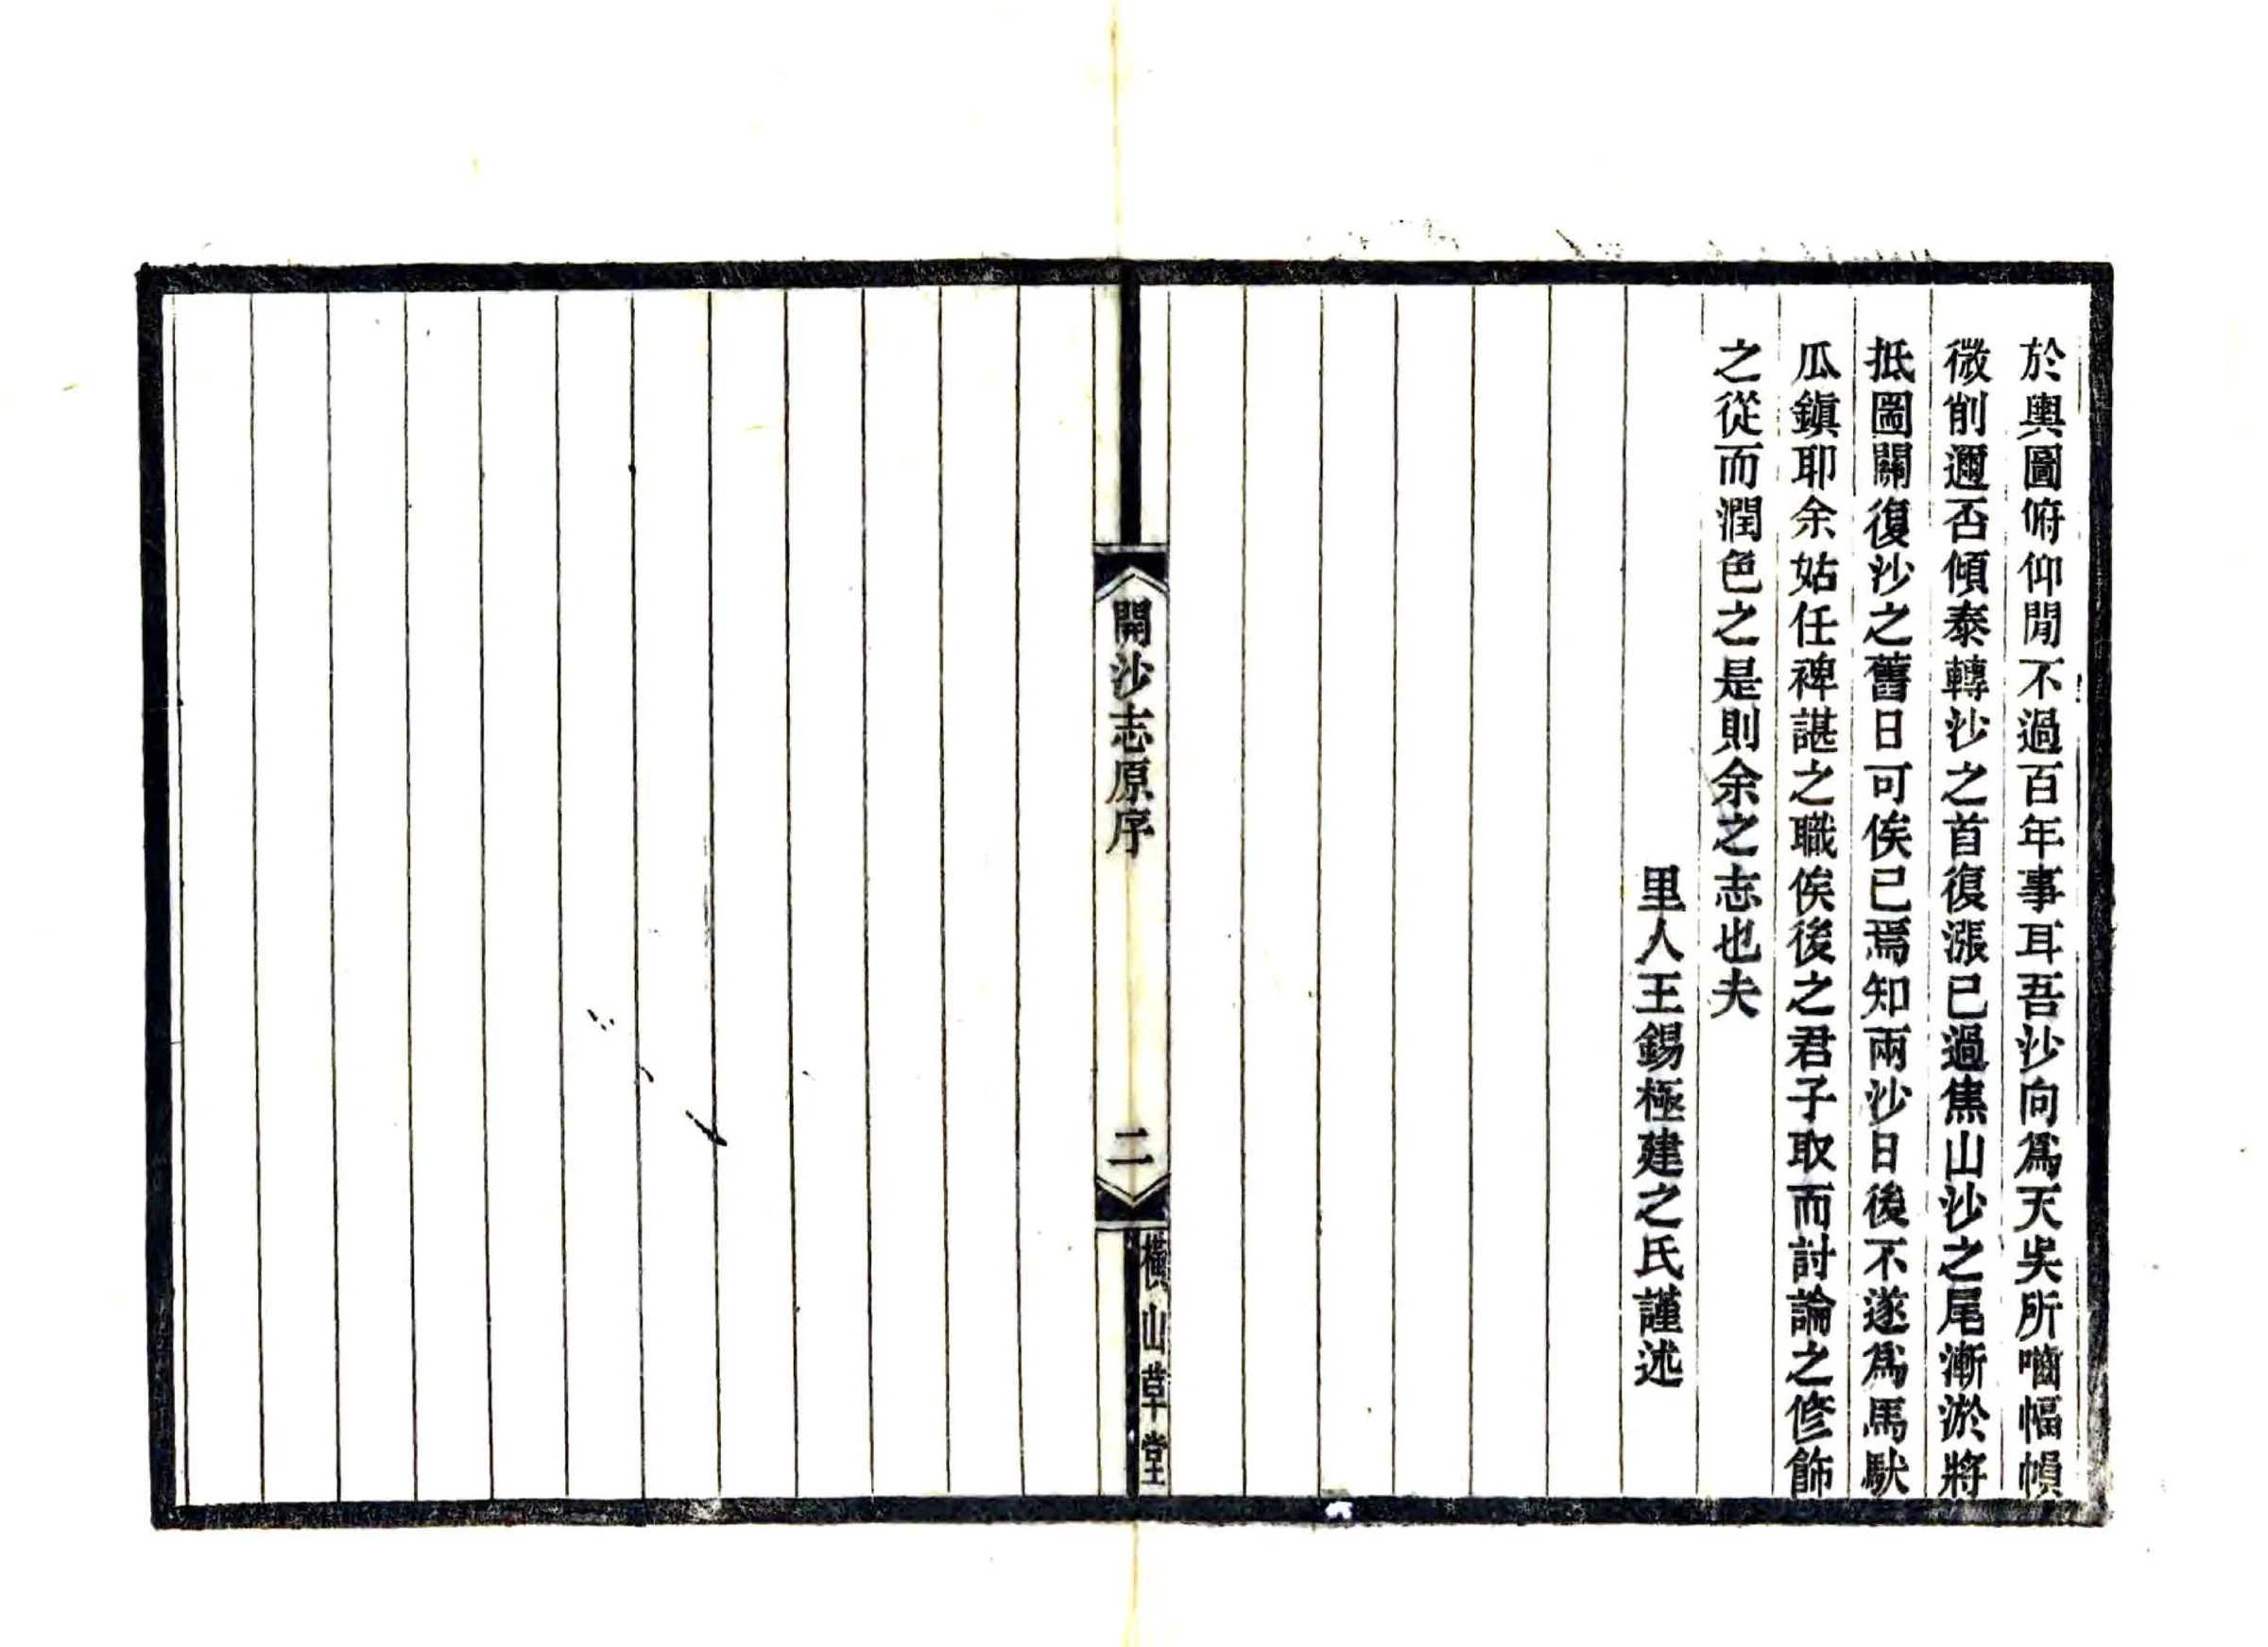 於輿圖俯仰閒不過百年事耳吾沙向爲天吳所嚙幅幀
微削邇否傾泰轉沙之首復漲已過焦山沙之尾漸淤將
抵圌關復沙之舊日可俟已焉知兩沙日後不遂爲馬馱
瓜鎭耶余姑任裨諶之職俟後之君子取而討論之修飾
之從而潤色之是則余之志也夫
里人王錫極建之氏謹述
開沙志原序
二
橫山草堂